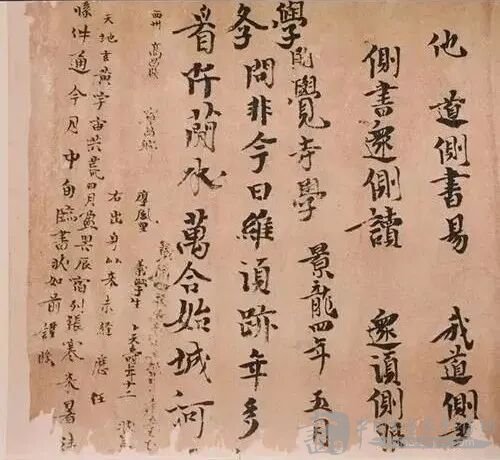 他道側書易 我道側書
側書還側讀 還須側眼
學開覺寺學 景龍四年五月
學問非今日維須跡年多
看阡簡水萬合始城河
西州 高昌縣 寧昌鄉 厚風里 義學生 卜天壽年十二 狀
右出身以來未經歷任
天地玄黃宇宙洪荒四月盈昃辰宿列張寒來暑往
牒件通今月中旬臨書狀如前謹牒